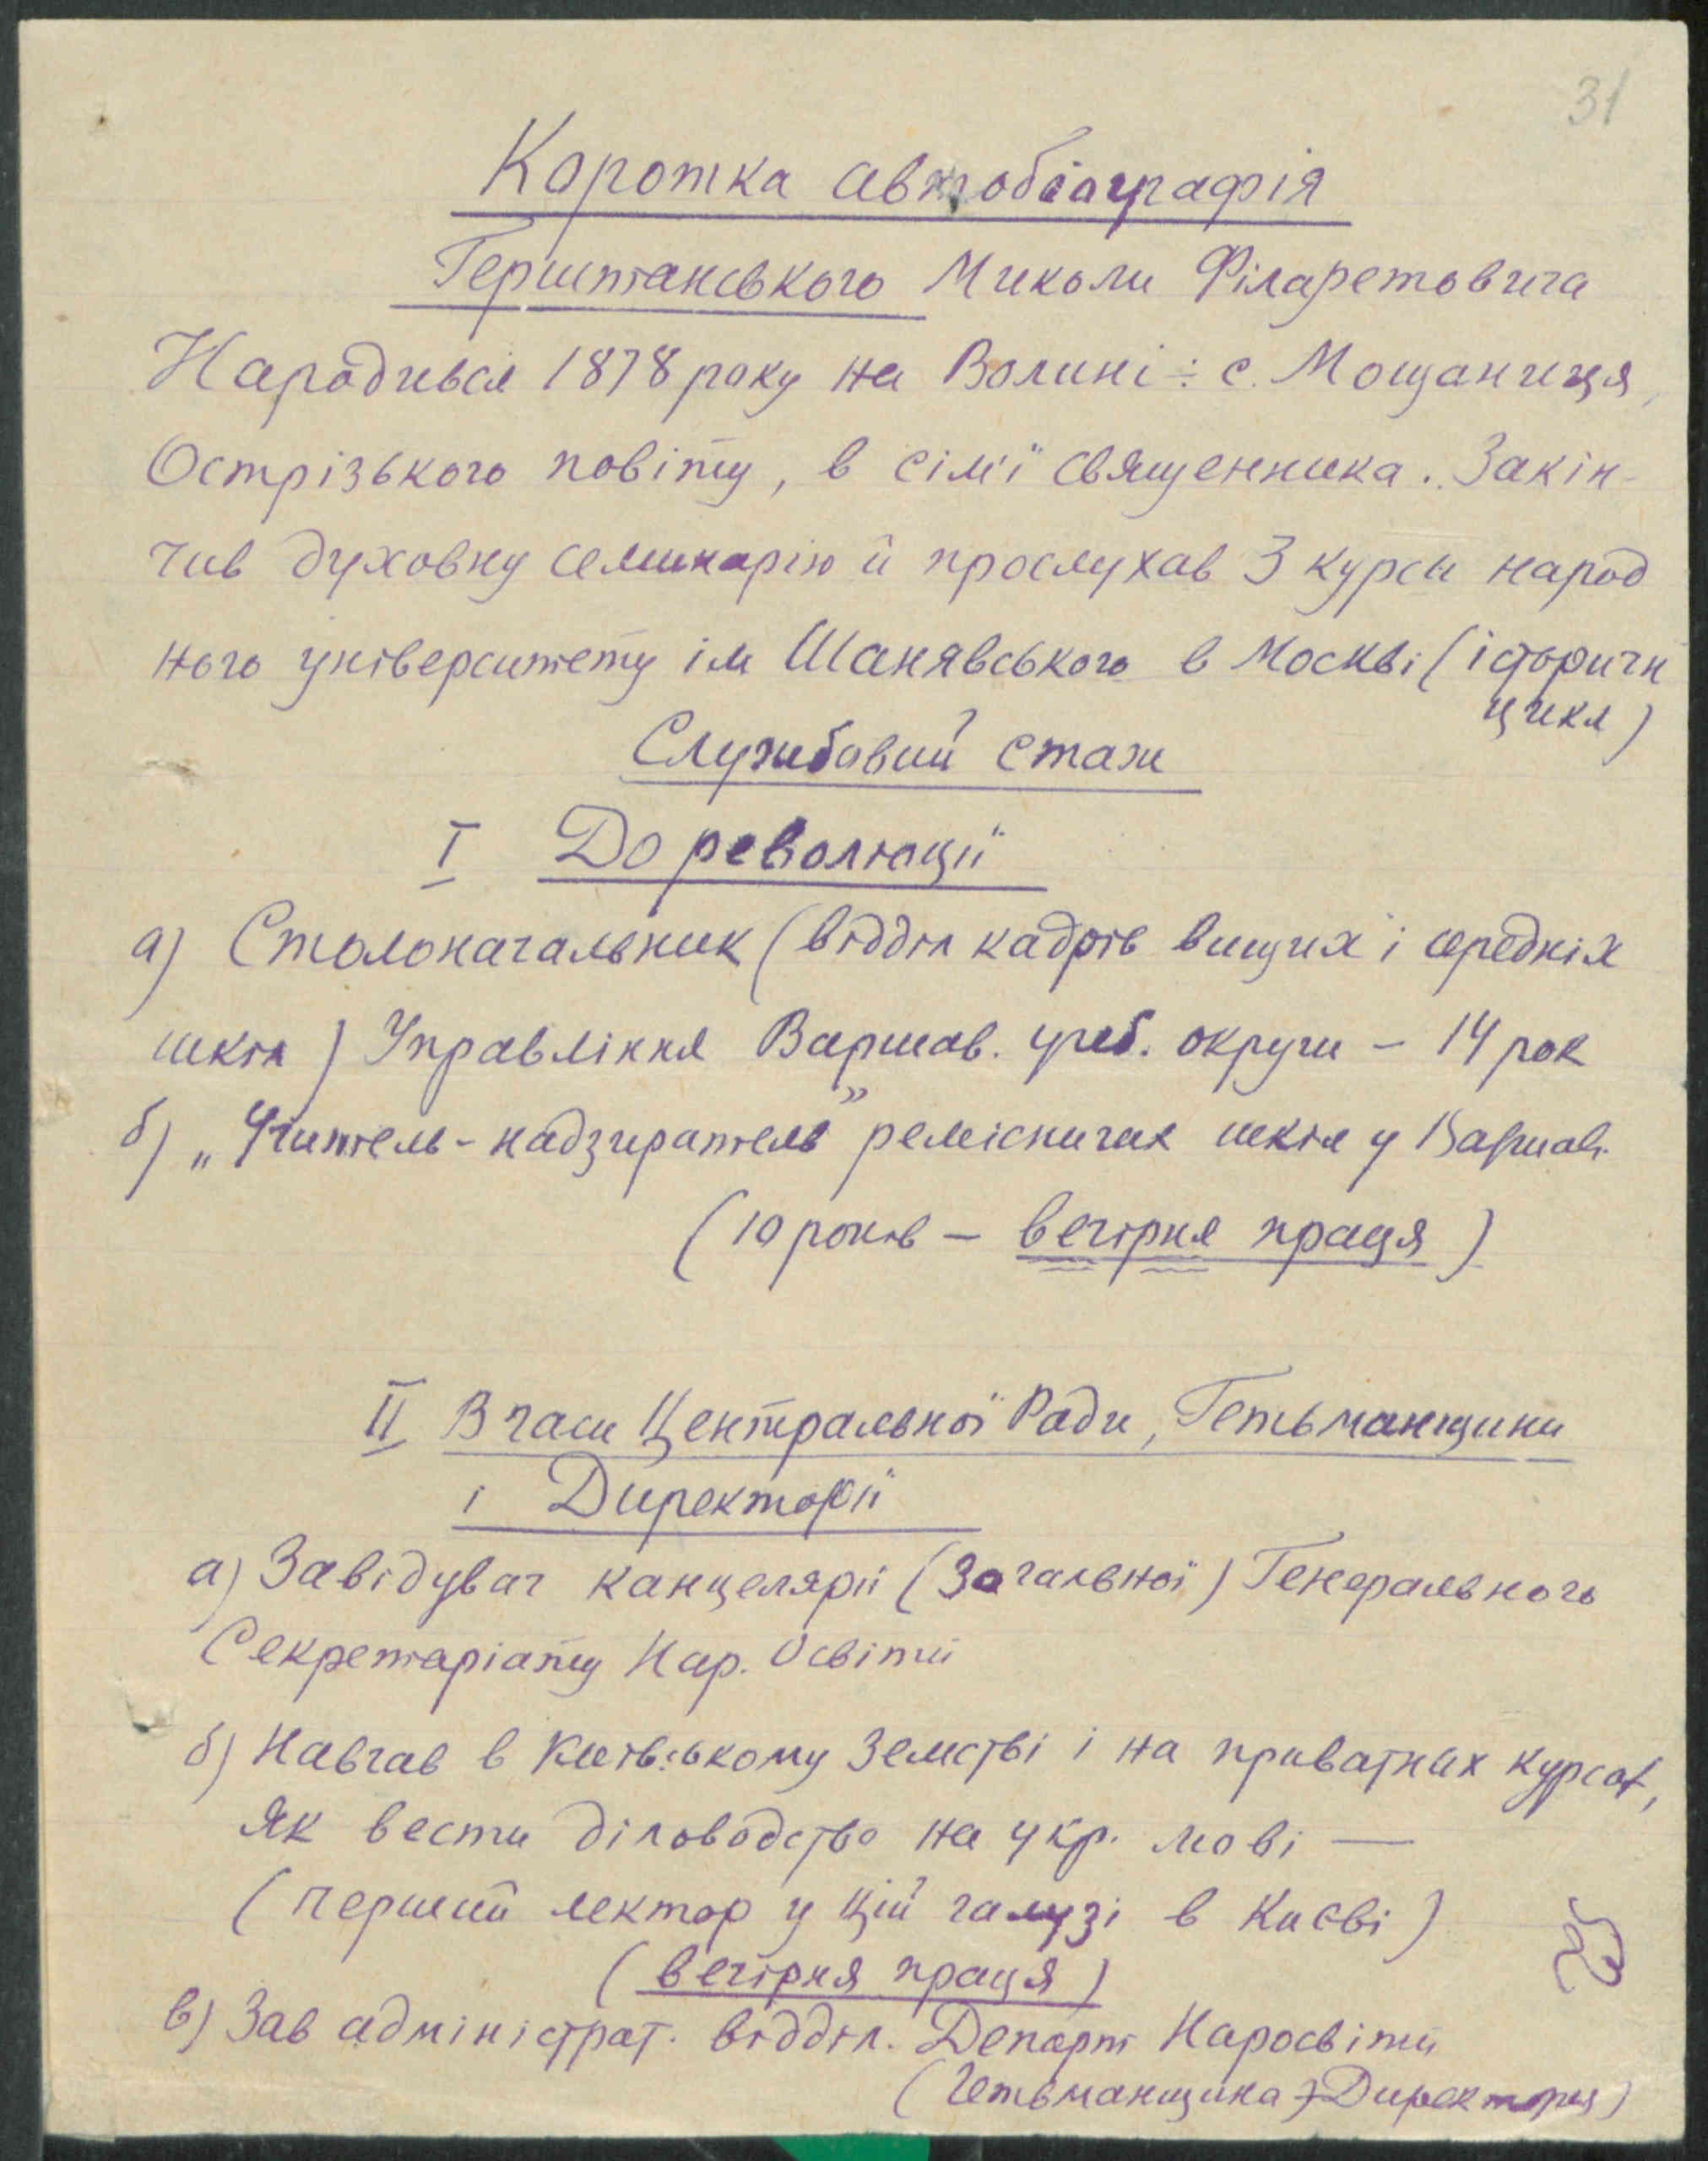 31
Коротка автобіографія
Герштанського Миколи Філаретовича
Народився 1878 року на Волині: с. Мощаниця,
Острізького повіту, в сім'ї священника. Закін-
чив духовну семинарію й прослухав 3 курси народ
ного університету ім Шанявського в Москві (історичн
цикл)
Службовий стаж
I До революції
а) Столоначальник (відділ кадрів вищих і середніх
шкіл) Управління Варшав. учеб. округи – 14 рок
б) „Учитель-надзиратель” ремісничих шкіл у Варшав.
(10 років – вечірня праця)
II В часи Центральної Ради, Гетьманщини
і Директорії
а) Завідувач канцелярії (Загальної) Генерального
Секретаріату Нар. Освіти
б) Навчав в Київському Земстві і на приватних курсах,
як вести діловодство на укр. мові —
(перший лектор у цій галузі в Києві)
(вечірня праця)
в) Зав адміністрат. відділ. Департ Наросвіти
(Гетьманщина Директорія)